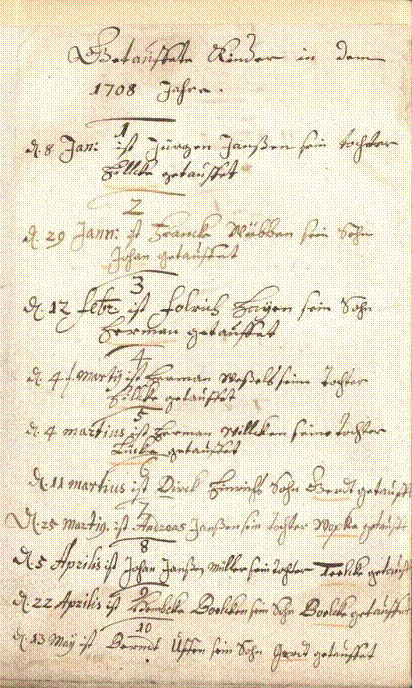 Getauffete Kinder in dem
1708 Jahre.
1
d. 8 Jan: ist Jürgen Janßen sein tochter
Hillke getauffet
2
d. 29 Jann: ist Francke Wübben sein Sohn
Johan getauffet
3
d. 12 febr: ist Folrich Hayen sein Sohn
Herman getauffet
4
d. 4 Martij ist Herman Weßels seine Tochter
getauffet
5
d. 4 martius ist Herman Willken seine Tochter
getauffet
6
d. 11 martius ist Dirck Hinrichs Sohn Gerdt getaufft
7
d. 25 martig. ist Andreas Janßen sein tochter Wopke getauft
8
d. 5 Aprilis ist Johan Janßen Müller sein tochter getauft
9
d. 22 Aprilis ist Boelcken sein Sohn Boelcke getauffet
10
d. 13 May ist Berent Ulffen sein Sohn Gerd getauffet